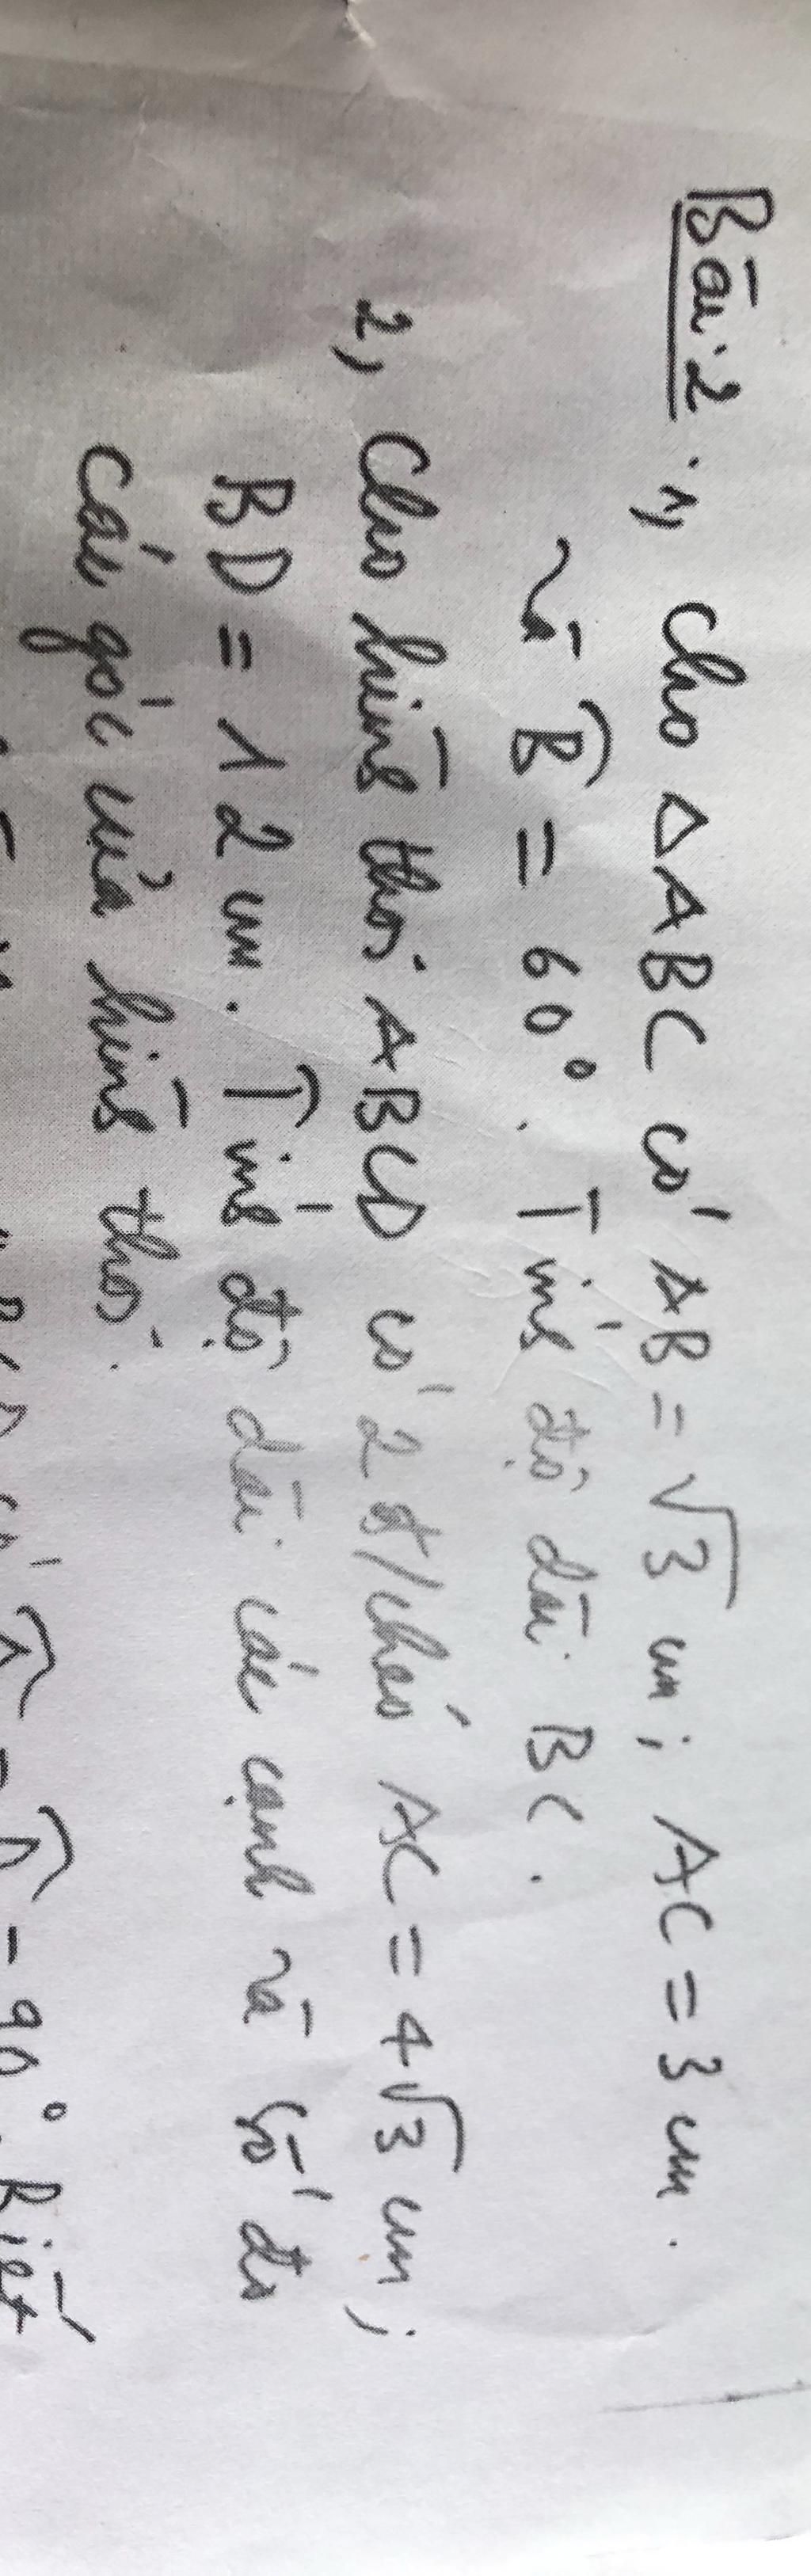 Bài 2 1, Cho △ABC có AB = √3 cm; AC = 3 cm.
và B̂ = 60°. Tính độ dài BC.
2, Cho hình thoi ABCD có 2 đ/chéo AC = 4√3 cm;
BD = 12 cm. Tính độ dài các cạnh và số đo
các góc của hình thoi.
= 90°. Biết